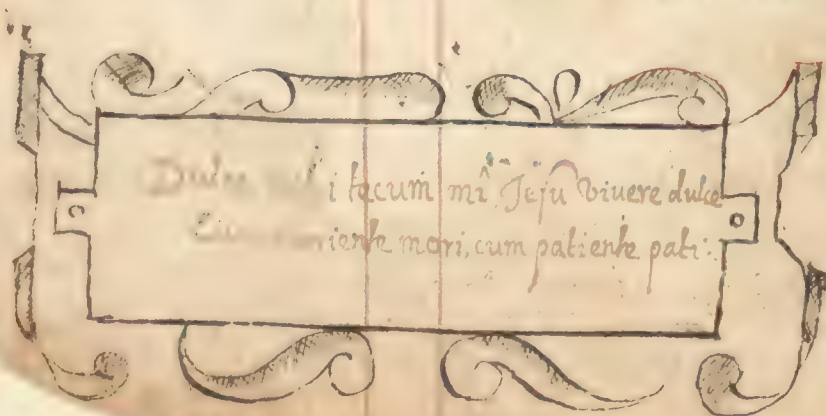 Dulce i tecum mî Jesu vivere dulce
Cum moriente mori, cum patiente pati.